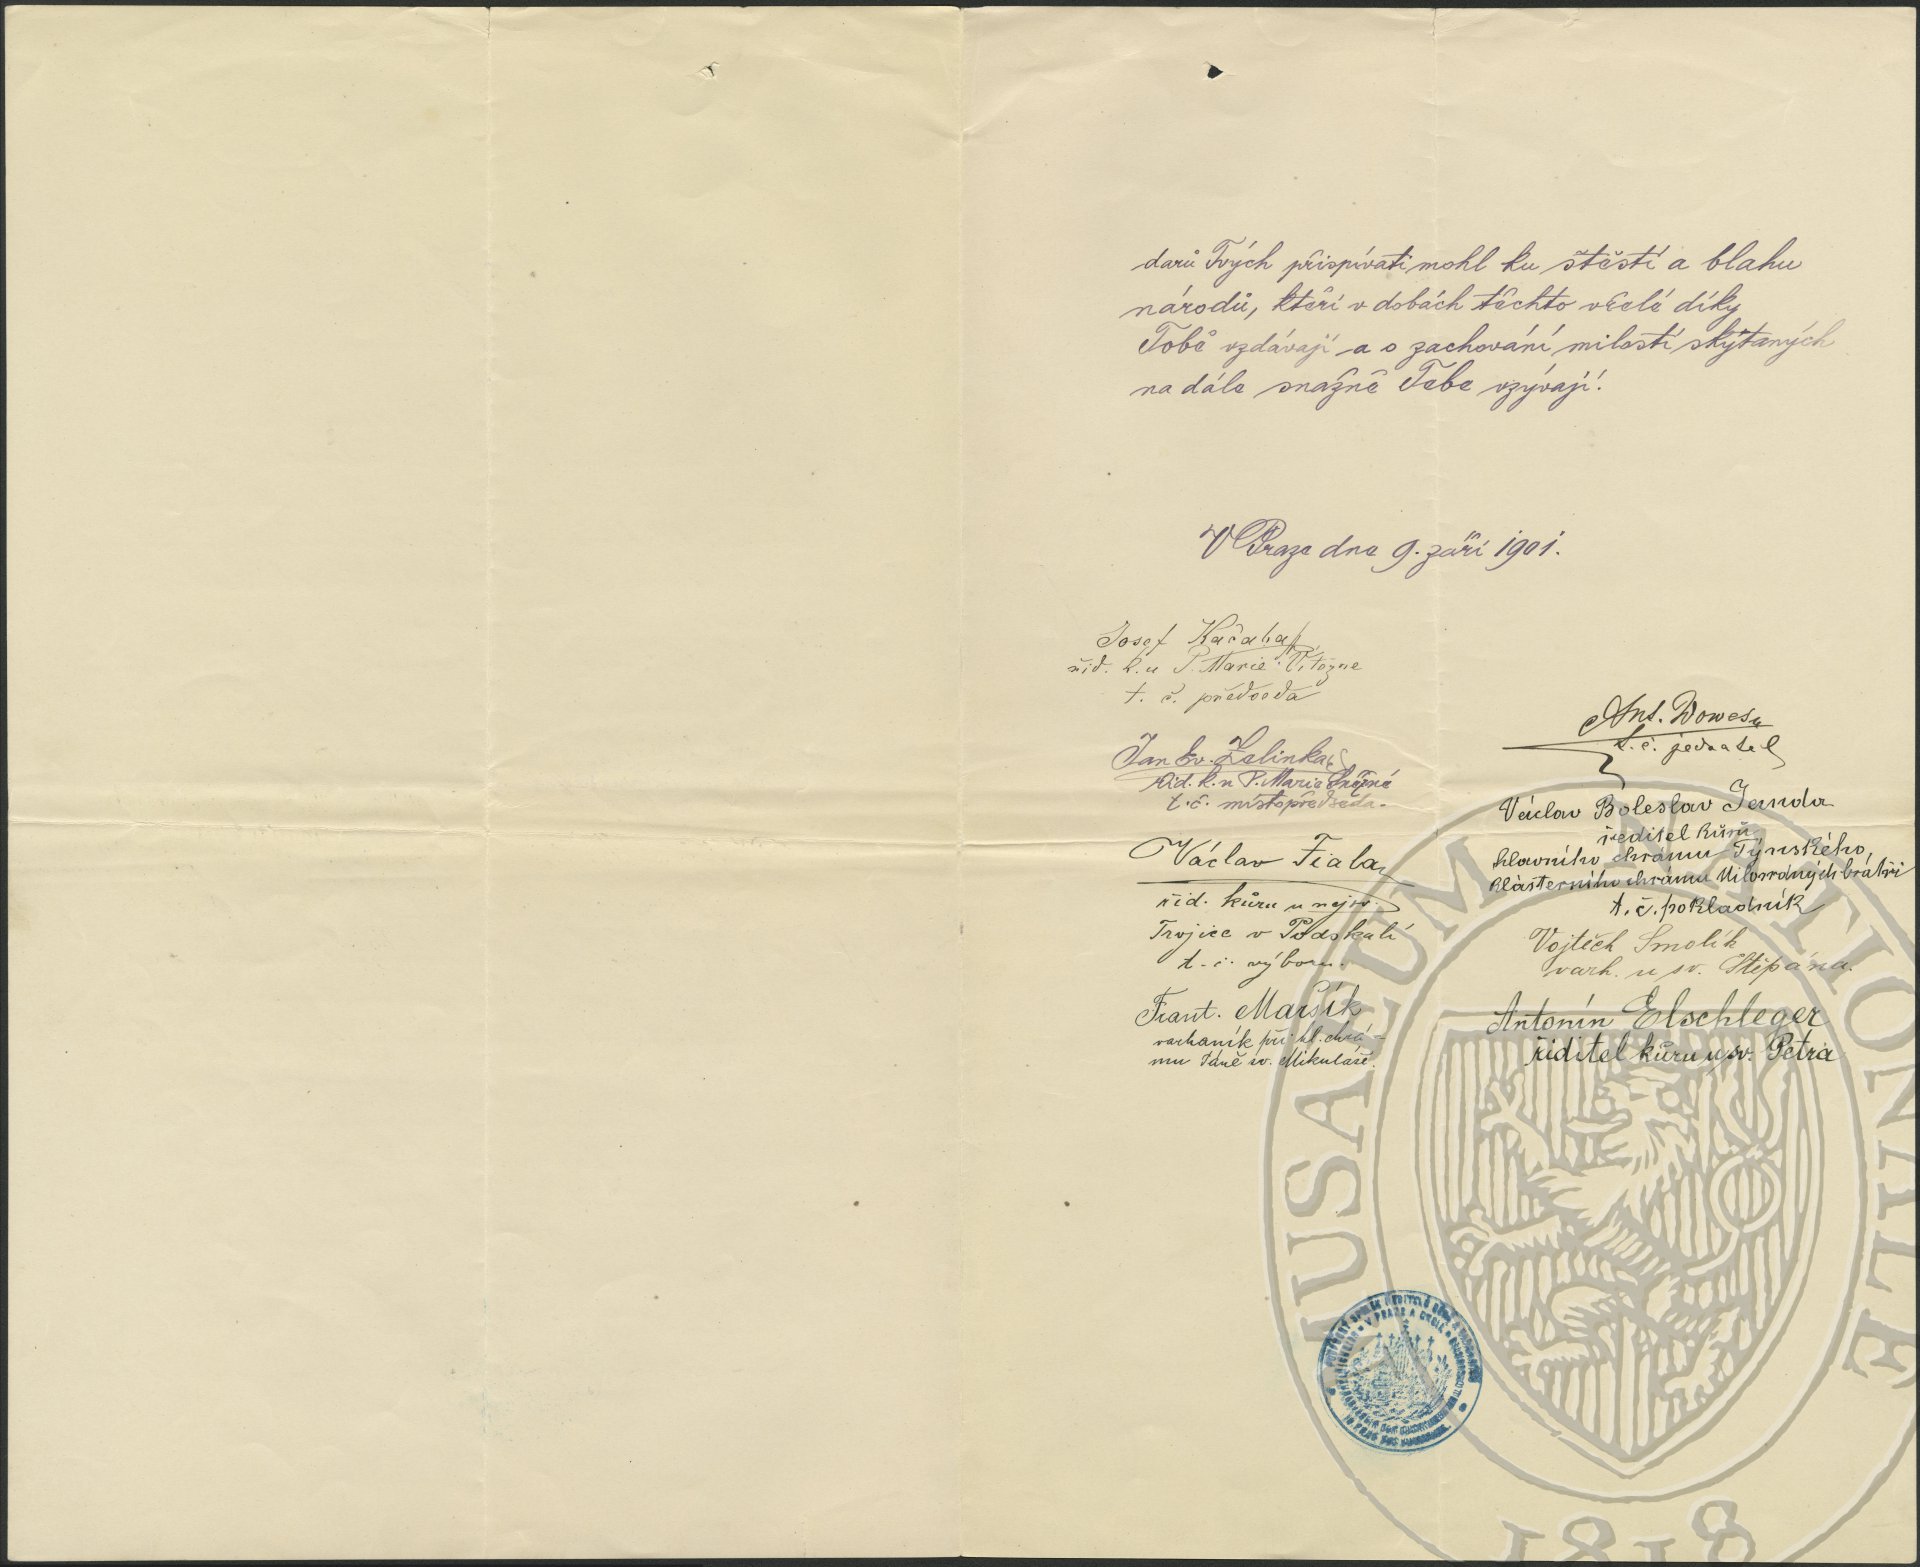 darů Tvých přispívati mohl ku štěstí a blahu
národů, kteří v dobách těchto vřelé díky
Tobě vzdávají a o zachování milostí skýtaných
na dále snažně Tebe vzývají!
V Praze dne 9. září 1901.
Josef Kačaba
řid. k. u P. Marie Vítězne
t. č. předseda
Jan Ev. Zelinka
řid. k. u P. Marie Sněžné
t. č. místopředseda.
Václav Fiala
řid. kůru u nejsv.
Trojice v Podskalí
t. č. výboru.
Frant. Maršík
varhaník při hl. chrá-
mu Páně sv. Mikuláše.
Ant.
t. č. jednatel
Václav Boleslav Janda
ředitel kůrů
hlavního chrámu Týnského,
klášterního chrámu Milosrdných bratří
t. č. pokladník
Vojtěch Smolík
varh. u sv. Štěpána.
Antonín Elschleger
řiditel kůru u sv. Petra
V PRAZE A OKOLÍ
MUSAEUM NATIONALE
1818